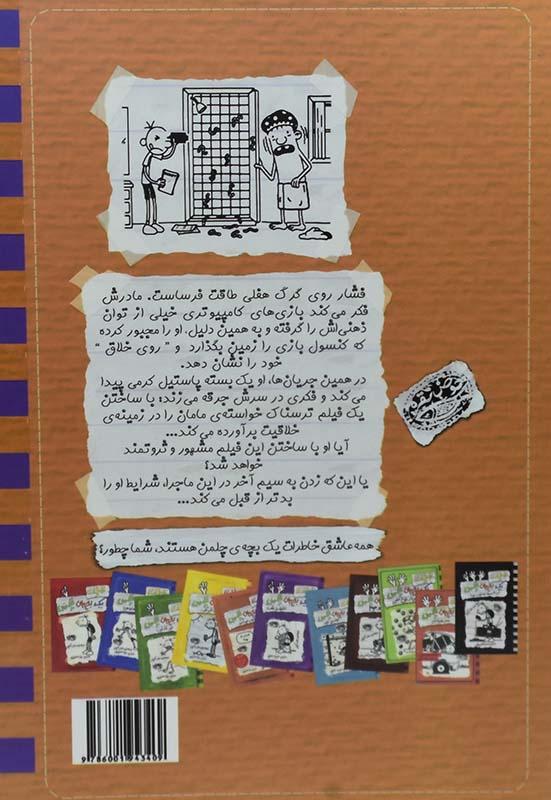 فشار روی گرگ هفلی طاقت فرساست. مادرش
فکر می‌کند بازی‌های کامپیوتری خیلی از توان
ذهنی‌اش را گرفته و به همین دلیل، او را مجبور کرده
که کنسول بازی را زمین بگذارد و "روی خلاق"
خود را نشان دهد.
در همین جریان‌ها، او یک بسته پاستیل کرمی پیدا
می کند و فکری در سرش جرقه می‌زند؛ با ساختن
یک فیلم ترسناک خواسته‌ی مامان را در زمینه‌ی
خلاقیت برآورده می‌کند...
آیا او با ساختن این فیلم مشهور و ثروتمند
خواهد شد؟
یا این که زدن به سیم آخر در این ماجرا، شرایط او را
بدتر از قبل می‌کند...
همه عاشق خاطرات یک بچه‌ی چلمن هستند، شما چطور؟
9 786001 943409